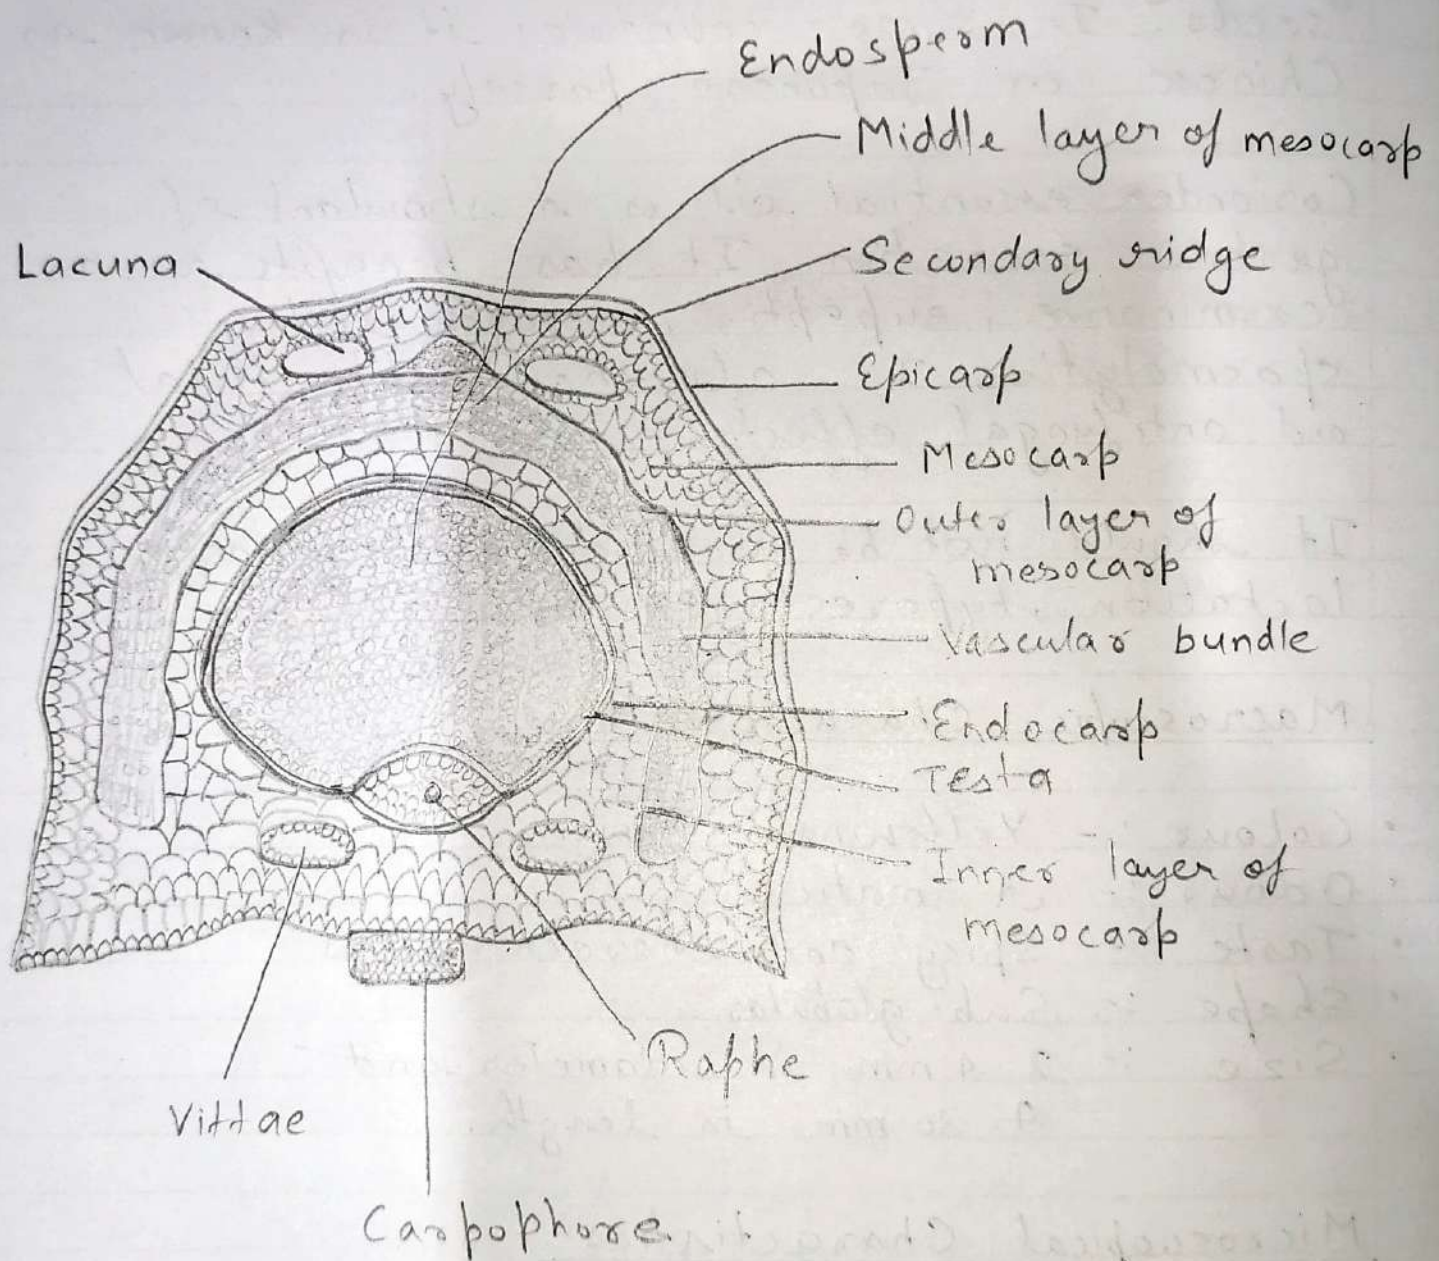 Endosperm
Middle layer of mesocarp
Lacuna
Secondary ridge
Epicarp
Mesocarp
Outer layer of
mesocarp
Vascular bundle
Endocarp
Testa
Inner layer of
mesocarp
Raphe
Vittae
Carpophore